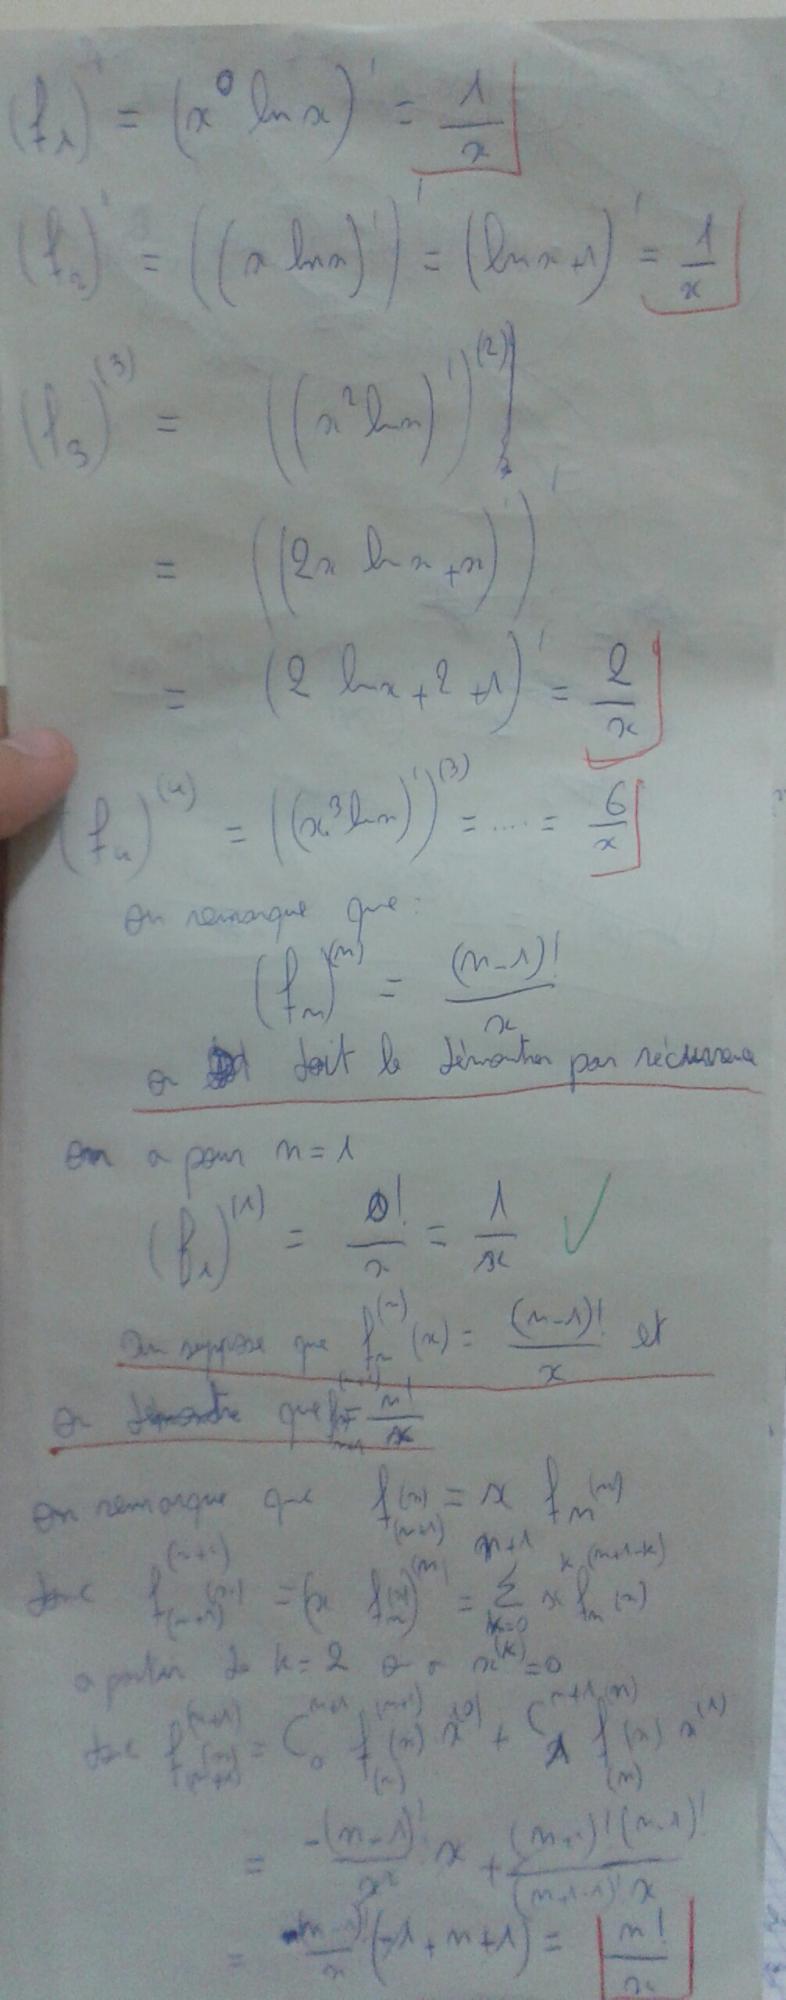 (f₁)' = (x⁰ ln x)' = 1/x
(f₂)' = ((x ln x)')' = (ln x + 1)' = 1/x
(f₃)⁽³⁾ = ((x² ln x)')⁽²⁾
= ((2x ln x + x)')'
= (2 ln x + 2 + 1)' = 2/x
(f₄)⁽⁴⁾ = ((x³ ln x)')⁽³⁾ = .... = 6/x
on remarque que :
(fₙ)⁽ⁿ⁾ = (n-1)!/x
on doit le démontrer par récurrence
on a pour n = 1
(f₁)⁽¹⁾ = 0!/x = 1/x ✓
on suppose que fₙ⁽ⁿ⁾(x) = (n-1)!/x et
on démontre que = n!/x
on remarque que f₍ₙ₊₁₎(x) = x fₙ(x)
donc f₍ₙ₊₁₎⁽ⁿ⁺¹⁾(x) = (x fₙ(x)) = Σ
à partir de k = 2 on a x⁽ᵏ⁾ = 0
donc f₍ₙ₊₁₎⁽ⁿ⁺¹⁾(x) = C₀ⁿ⁺¹ f₍ₙ₎⁽ⁿ⁺¹⁾(x) x⁽⁰⁾ + C₁ⁿ⁺¹ f₍ₙ₎⁽ⁿ⁾(x) x⁽¹⁾
= -(n-1)!/x² x + (n+1)!(n-1)!/(n+1-1)! x
= (n-1)!/x (-1 + n + 1) = n!/x